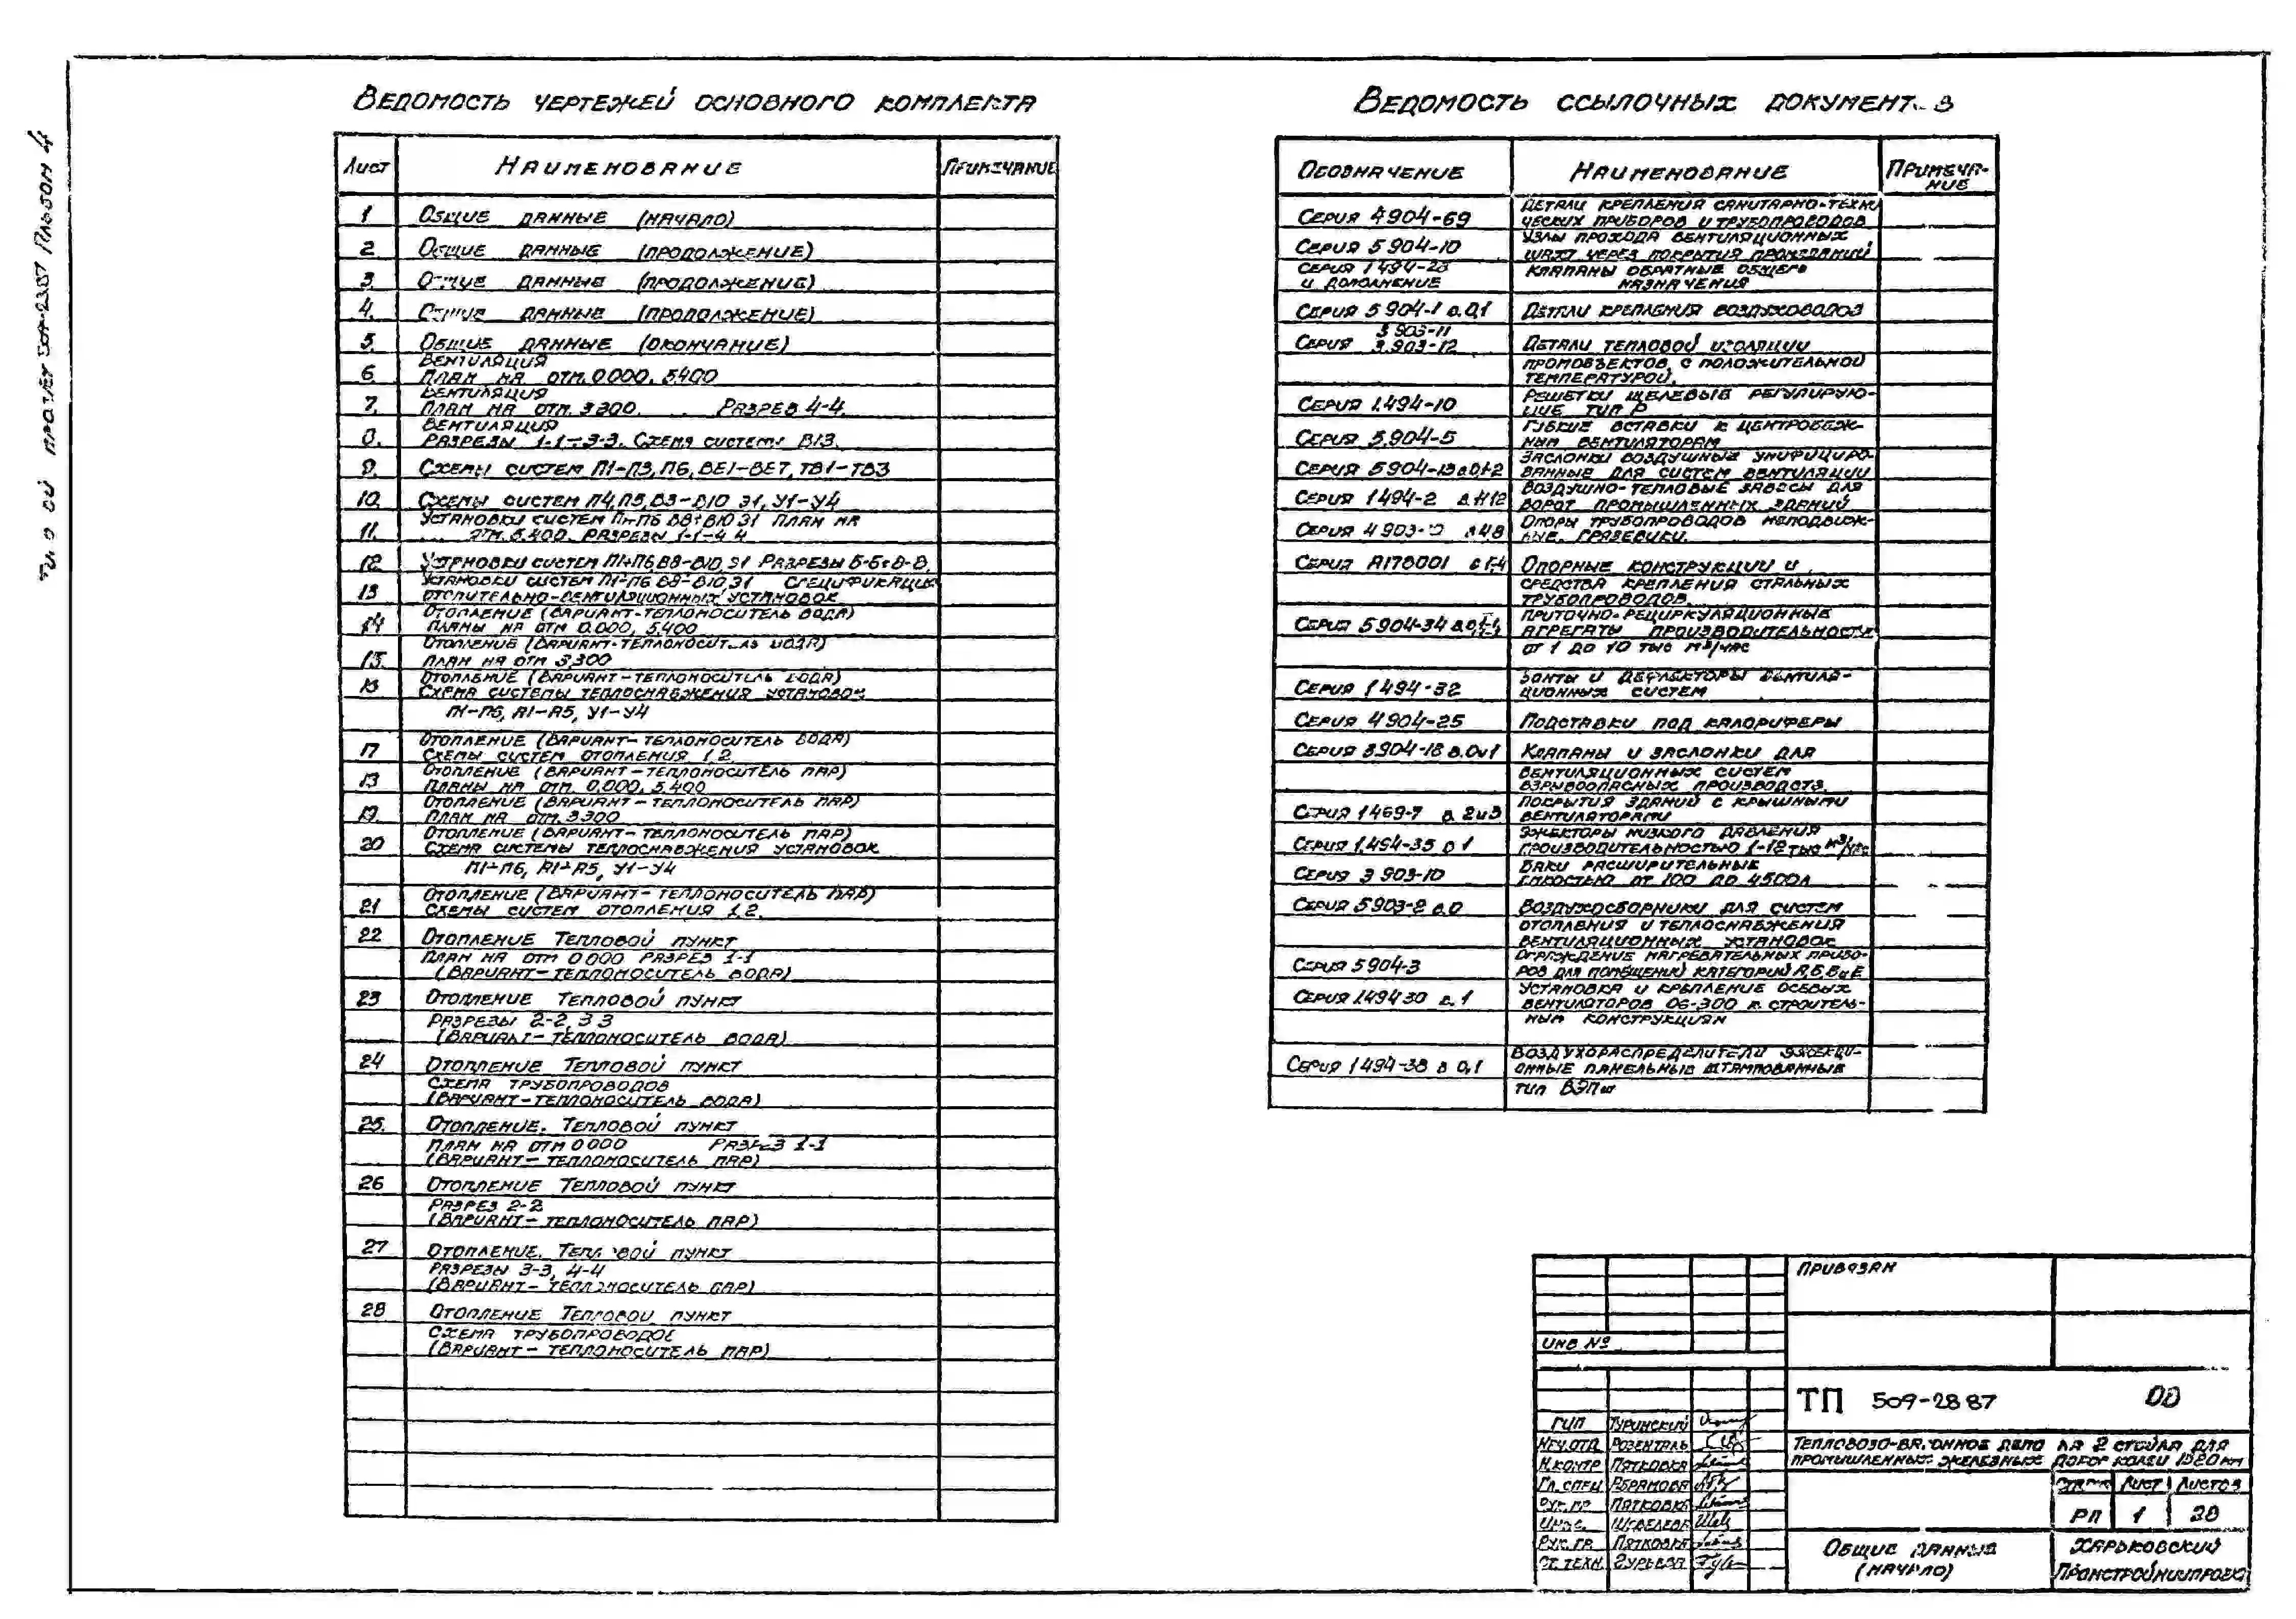 Альбом 4
Ведомость чертежей основного комплекта
Лист Наименование Примечание
1 Общие данные (начало)
2 Общие данные (продолжение)
3. Общие данные (продолжение)
4. Общие данные (продолжение)
5. Общие данные (окончание)
Вентиляция
6. План на отм. 0.000, 5.400
Вентиляция
7. План на отм. 3.300. Разрез 4-4.
Вентиляция
8. Разрезы 1-1÷3-3. Схема системы В13.
9. Схемы систем П1-П3, П6, ВЕ1-ВЕ7, ТВ1-ТВ3
10. Схемы систем П4, П5, В3-В10 Э1, У1-У4
Установки систем В8÷В10 Э1 План на
11. отм. 5.400. Разрезы 1-1-4 4
12 Установки систем П1÷П6, В8-В10, Э1 Разрезы
Установки систем П1-П6 В8-В10, Э1 Спецификация
13 отопительно-вентиляционных установок
Отопление (вариант-теплоноситель вода)
14 Планы на отм 0.000, 5.400
Отопление (вариант-теплоноситель вода)
15. План на отм 3.300
Отопление (вариант-теплоноситель вода)
16 Схема системы теплоснабжения установок
П1-П6, А1-А5, У1-У4
Отопление (вариант-теплоноситель вода)
17 Схемы систем отопления 1.2.
Отопление (вариант-теплоноситель пар)
18 Планы на отм. 0.000, 5.400
Отопление (вариант-теплоноситель пар)
19. План на отм. 3.300
Отопление (вариант-теплоноситель пар)
20 Схема системы теплоснабжения установок
П1-П6, А1-А5, У1-У4
Отопление (вариант-теплоноситель пар)
21 Схемы систем отопления 1.2.
22 Отопление Тепловой пункт
План на отм 0 000 Разрез 1-1
(вариант-теплоноситель вода)
23 Отопление Тепловой пункт
Разрезы 2-2, 3 3
(вариант-теплоноситель вода)
24 Отопление Тепловой пункт
Схема трубопроводов
(вариант-теплоноситель вода)
25. Отопление. Тепловой пункт
План на отм 0 000 Разрез 1-1
(вариант-теплоноситель пар)
26 Отопление Тепловой пункт
Разрез 2-2
(вариант-теплоноситель пар)
27 Отопление. Тепловой пункт
Разрезы 3-3, 4-4
(вариант-теплоноситель пар)
28 Отопление Тепловой пункт
Схема трубопроводов
(вариант-теплоноситель пар)
Ведомость ссылочных документов
Обозначение Наименование Примеча-
ние
Детали крепления санитарно-техни
Серия 4 904-69 ческих приборов и трубопроводов
Узлы прохода вентиляционных
Серия 5 904-10 шахт через покрытия промзданий
Серия 1 494-28 Клапаны обратные общего
и дополнение назначения
Серия 5 904-1 в. 0,1 Детали крепления воздуховодов
3 903-11
Серия 3.903-12 Детали тепловой изоляции
промобъектов с положительной
температурой.
Решетки щелевые регулирую-
Серия 1.494-10 щие тип Р
Гибкие вставки к центробеж-
Серия 5.904-5 ным вентиляторам
Заслонки воздушные унифициро-
Серия 5904-13 ванные для систем вентиляции
Воздушно-тепловые завесы для
Серия 1 494-2 ворот промышленных зданий
Опоры трубопроводов неподвиж-
Серия 4 903-10 ные. Грязевики.
Серия А178001 Опорные конструкции и
средства крепления стальных
трубопроводов.
Приточно-рециркуляционные
Серия 5904-34 агрегаты производительностью
от 1 до 10 тыс м³/час
Зонты и дефлекторы вентиля-
Серия 1 494-32 ционных систем
Серия 4 904-25 Подставки под калориферы
Серия 3904-18 в. 0и1 Клапаны и заслонки для
вентиляционных систем
взрывоопасных производств.
Покрытия зданий с крышными
Серия 1469-7 в. 2и3 вентиляторами
Эжекторы низкого давления
Серия 1.494-35 в 1 производительностью 1-12 тыс м³/час
Баки расширительные
Серия 3 903-10 емкостью от 100 до 4500л
Серия 5903-2 в. 0 Воздухосборники для систем
отопления и теплоснабжения
вентиляционных установок
Ограждение нагревательных прибо-
Серия 5 904-3 ров для помещений категорий А, Б, В и Е
Установка и крепление осевых
Серия 1494 30 в. 1 вентиляторов 06-300 к строитель-
ным конструкциям
Воздухораспределители эжекци-
Серия 1 494-38 в 0,1 онные панельные штампованные
тип ВЭПш
Привязан
Инв №
ТП 509-28 87 ОВ
ГИП Туринский
Нач.отд Розенталь
Н.контр Пятковка
Гл. спец Абрамова
Рук. гр Пятковка
Инж.
Рук. гр. Пятковка
Ст. техн. Гурьева
Тепловозо-вагонное депо на 2 стойла для
промышленных железных дорог колеи 1520 мм
Лист Листов
РП 1 28
Общие данные
(начало)
Харьковский
Промстройниипроект